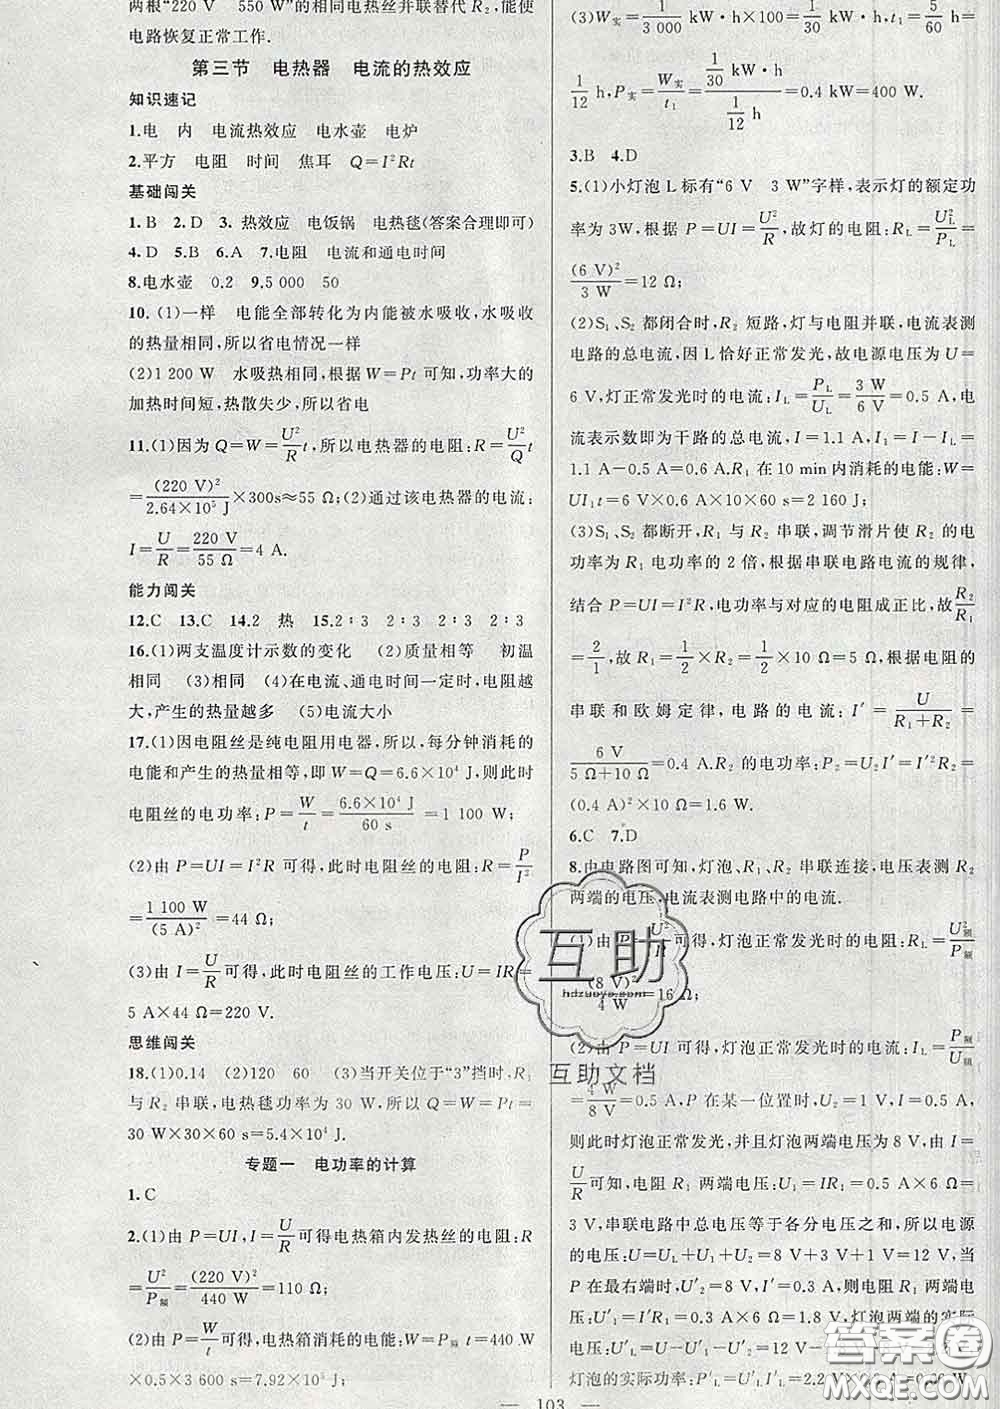 两根“220 V 550 W”的相同电热丝并联替代 R₂,能使
电路恢复正常工作.
第三节 电热器 电流的热效应
知识速记
1.电 内 电流热效应 电水壶 电炉
2.平方 电阻 时间 焦耳 Q=I²Rt
基础闯关
1.B 2.D 3.热效应 电饭锅 电热毯(答案合理即可)
4.D 5.B 6.A 7.电阻 电流和通电时间
8.电水壶 0.2 9.5 000 50
10.(1)一样 电能全部转化为内能被水吸收,水吸收
的热量相同,所以省电情况一样
(2)1 200 W 水吸热相同,根据 W=Pt 可知,功率大的
加热时间短,热散失少,所以省电
11.(1)因为 Q=W=U²/R t,所以电热器的电阻:R=U²/Q t
=(220 V)²/2.64×10⁵ J×300s≈55 Ω;(2)通过该电热器的电流:
I=U/R=220 V/55 Ω=4 A.
能力闯关
12.C 13.C 14.2 热 15.2∶3 2∶3 2∶3 2∶3
16.(1)两支温度计示数的变化 (2)质量相等 初温
相同 (3)相同 (4)在电流、通电时间一定时,电阻越
大,产生的热量越多 (5)电流大小
17.(1)因电阻丝是纯电阻用电器,所以,每分钟消耗的
电能和产生的热量相等,即 W=Q=6.6×10⁴ J,则此时
电阻丝的电功率:P=W/t=6.6×10⁴ J/60 s=1 100 W;
(2)由 P=UI=I²R 可得,此时电阻丝的电阻:R=P/I²
=1 100 W/(5 A)²=44 Ω;
(3)由 I=U/R可得,此时电阻丝的工作电压:U=IR=
5 A×44 Ω=220 V.
思维闯关
18.(1)0.14 (2)120 60 (3)当开关位于“3”挡时,R₁
与 R₂ 串联,电热毯功率为 30 W,所以 Q=W=Pt=
30 W×30×60 s=5.4×10⁴ J.
专题一 电功率的计算
1.C
2.(1)由 P=UI,I=U/R可得电热箱内发热丝的电阻:R
=U²/P额=(220 V)²/440 W=110 Ω;
(2)由 P=W/t可得,电热箱消耗的电能:W=P额 t=440 W
×0.5×3 600 s=7.92×10⁵ J;
(3)W实=1/3 000 kW·h×100=1/30 kW·h,t₁=5/60 h=
1/12 h,P实=W实/t₁=1/30 kW·h/1/12 h=0.4 kW=400 W.
3.B 4.D
5.(1)小灯泡 L 标有“6 V 3 W”字样,表示灯的额定功
率为 3W,根据 P=UI=U²/R,故灯的电阻:R_L=U_L²/P_L=
(6 V)²/3 W=12 Ω;
(2)S₁、S₂ 都闭合时,R₂ 短路,灯与电阻并联,电流表测
电路的总电流,因 L 恰好正常发光,故电源电压为 U=
6 V,灯正常发光时的电流:I_L=P_L/U_L=3 W/6 V=0.5 A,电
流表示数即为干路的总电流,I=1.1 A,I₁=I−I_L=
1.1 A−0.5 A=0.6 A.R₁ 在 10 min 内消耗的电能:W=
UI₁t=6 V×0.6 A×10×60 s=2 160 J;
(3)S₁、S₂ 都断开,R₁ 与 R₂ 串联,调节滑片使 R₂ 的电
功率为 R₁ 电功率的 2 倍,根据串联电路电流的规律,
结合 P=UI=I²R,电功率与对应的电阻成正比,故R₂/R₁
=2/1,故 R₁=1/2×R₂=1/2×10 Ω=5 Ω,根据电阻的
串联和欧姆定律,电路的电流:I′=U/R₁+R₂=
6 V/5 Ω+10 Ω=0.4 A.R₂ 的电功率:P₂=U₂I′=I′²R₂=
(0.4 A)²×10 Ω=1.6 W.
6.C 7.D
8.由电路图可知,灯泡、R₁、R₂ 串联连接,电压表测 R₂
两端的电压,电流表测电路中的电流.
(1)由 P=U²/R可得,灯泡正常发光时的电阻:R_L=U额²/P额
=(8 V)²/4 W=16 Ω;
(2)由 P=UI 可得,灯泡正常发光时的电流:I_L=P额/U额
=4 W/8 V=0.5 A,P 在某一位置时,U₂=1 V,I=0.5 A,
则此时灯泡正常发光,且灯泡两端电压为 8 V,由 I=
U/R可知,电阻 R₁ 两端电压:U₁=IR₁=0.5 A×6 Ω=
3 V,串联电路中总电压等于各分电压之和,所以电源
的电压:U=U_L+U₁+U₂=8 V+3 V+1 V=12 V,当
P 在最右端时,U′₂=8 V,I′=0.3 A,则电阻 R₁ 两端电
压:U′₁=I′R₁=0.3 A×6 Ω=1.8 V,灯泡两端的实际
电压:U′_L=U−U′₁−U′₂=12 V−
灯泡的实际功率:P′_L=U′_L I′=2.2 V×
103
互助
hdzuoye.com
互助文档
答案圈
MXQE.COM